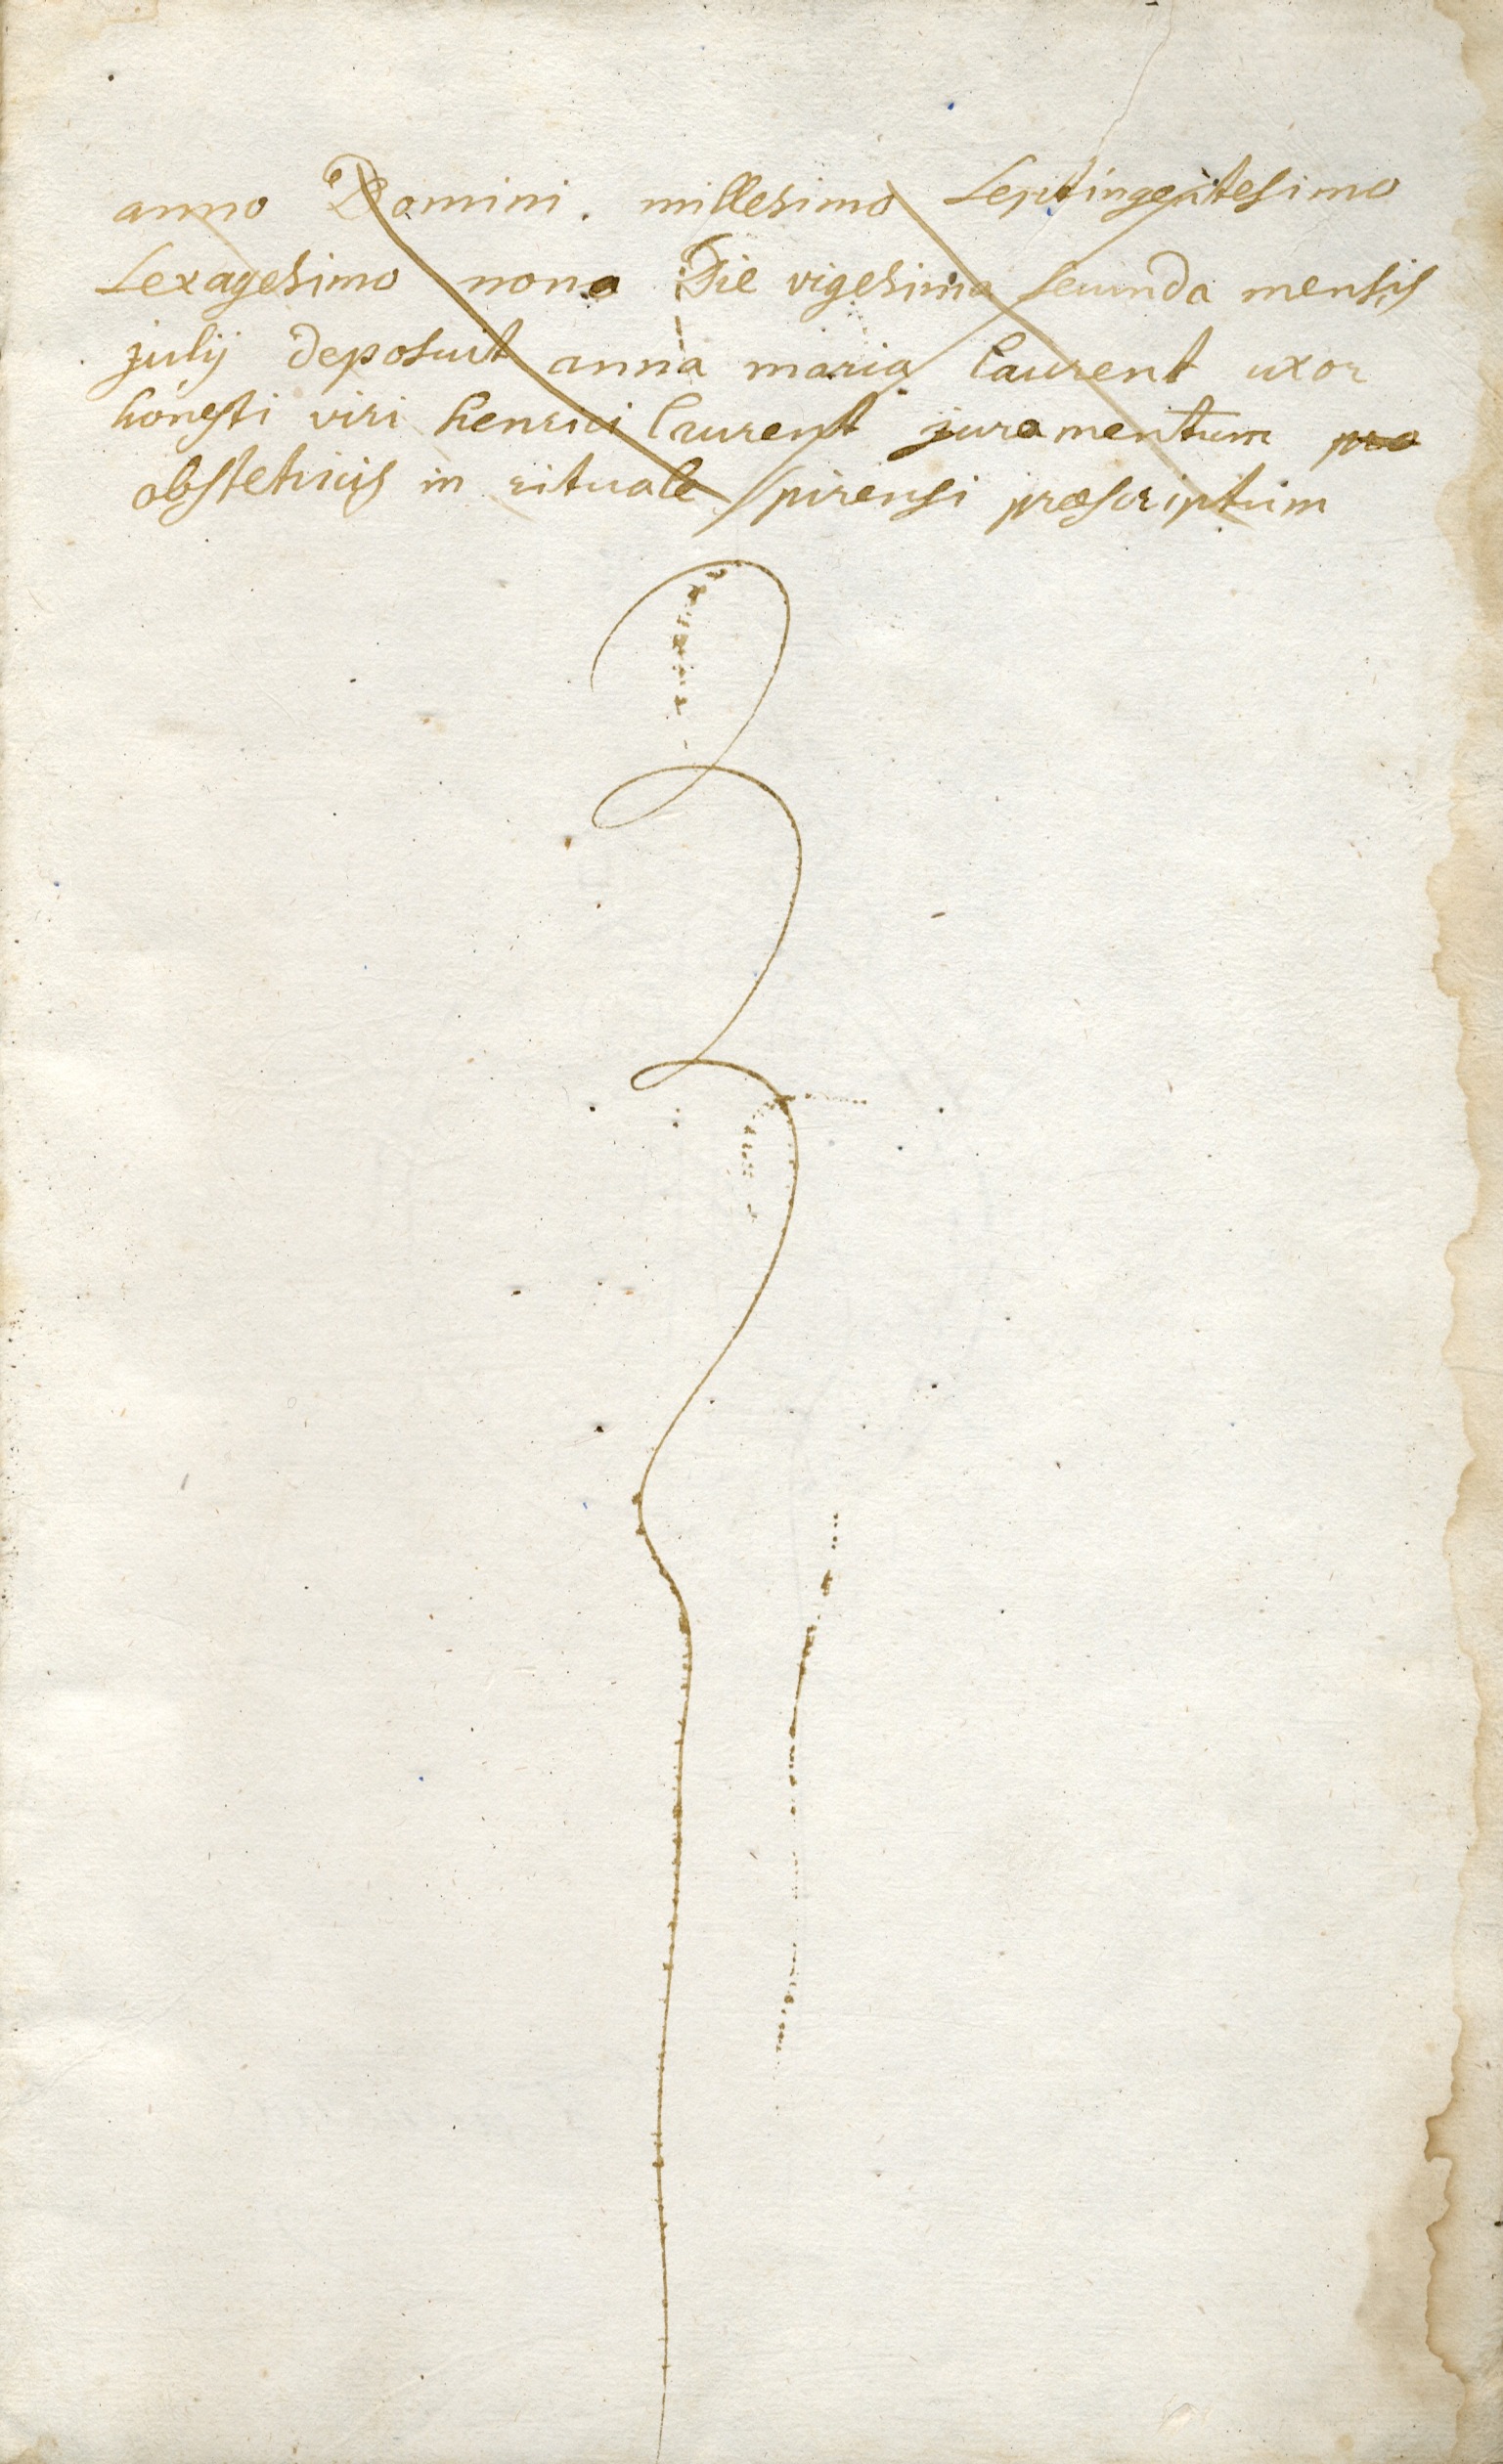 anno Domini. millesimo septingentesimo
sexagesimo nono Die vigesima secunda mensis
julij deposuit anna maria laurent uxor
honesti viri henrici laurent juramentum pro
obstetricis in rituale spirensi præscriptum